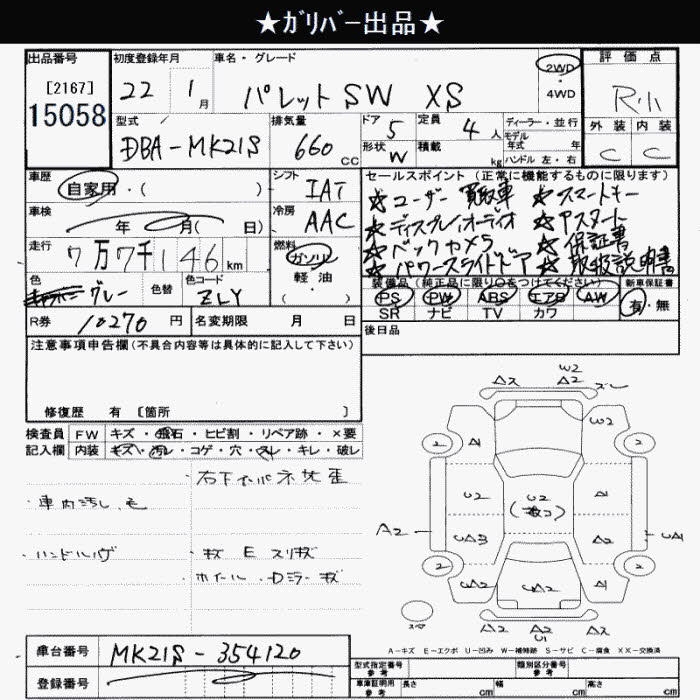 ★ｶﾞﾘﾊﾞｰ出品★
出品番号
[2167]
15058
初度登録年月
22 1月
車名・グレード
パレットSW XS
2WD
・
4WD
評価点
外装 内装
C C
型式
DBA-MK21S
排気量
660 CC
ドア 5
形状 W
定員 4 人
積載 kg
ディーラー・並行
モデル
年式 年
ハンドル 左・右
車歴
自家用・( )
シフト
IAT
車検
年 月( 日)
冷房
AAC
走行
7万7千146 km
燃料
ガソリン
軽・油
( )
色
グレー
色替
色コード
ZLY
R券 10270 円
名変期限 月 日
セールスポイント (正常に機能するものに限ります)
☆ユーザー買取車 ☆スマートキー
☆ディスプレイオーディオ ☆Pスタート
☆バックカメラ ☆保証書
☆パワースライドドア ☆取扱説明書
装備品(純正品に限り○をつけてください)
新車保証書
PS PW ABS エアB AW
SR ナビ TV カワ
有・無
後日品
注意事項申告欄(不具合内容等は具体的に記入して下さい)
修復歴 有 [箇所 ]
検査員 FW キズ・飛石・ヒビ割・リペア跡・×要
記入欄 内装 キズ・汚レ・コゲ・穴・スレ・キレ・破レ
・車内汚れ、色
・ハンドルハゲ
ホイール・カラーキズ
W2
A2 A2
W2
2 2
A1
U2 U2 A1
A2 UA3 A2 UA1
2 2
UA2 UA2 A1
A2 A2 A2
U1
A-キズ E-エクボ U-凹み W-補修跡 S-サビ C-腐食 XX-交換済
車台番号
MK21S-354120
登録番号
型式指定番号
参考
類別区分番号
参考
車庫証明用
参考
長さ cm 幅 cm 高さ cm